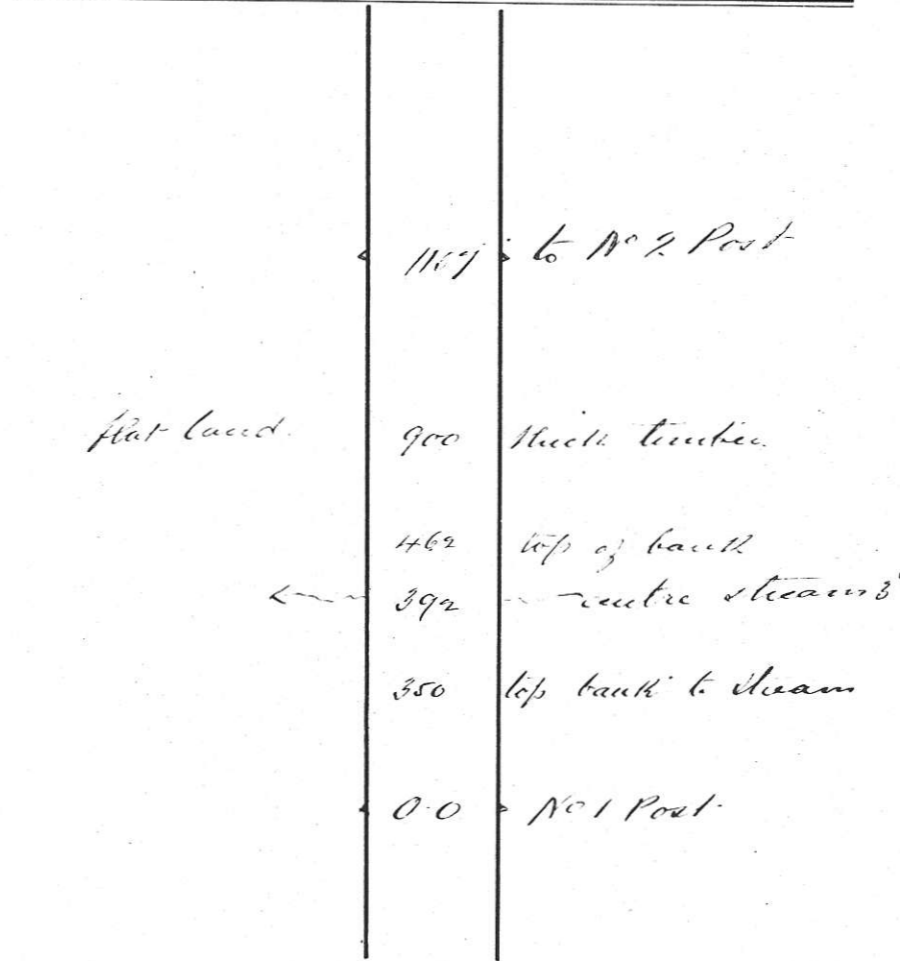 to No 2 Post
flat land. 900 thick timber.
462 top of bank
392 centre stream 3'
350 top bank to stream
0.0 No 1 Post